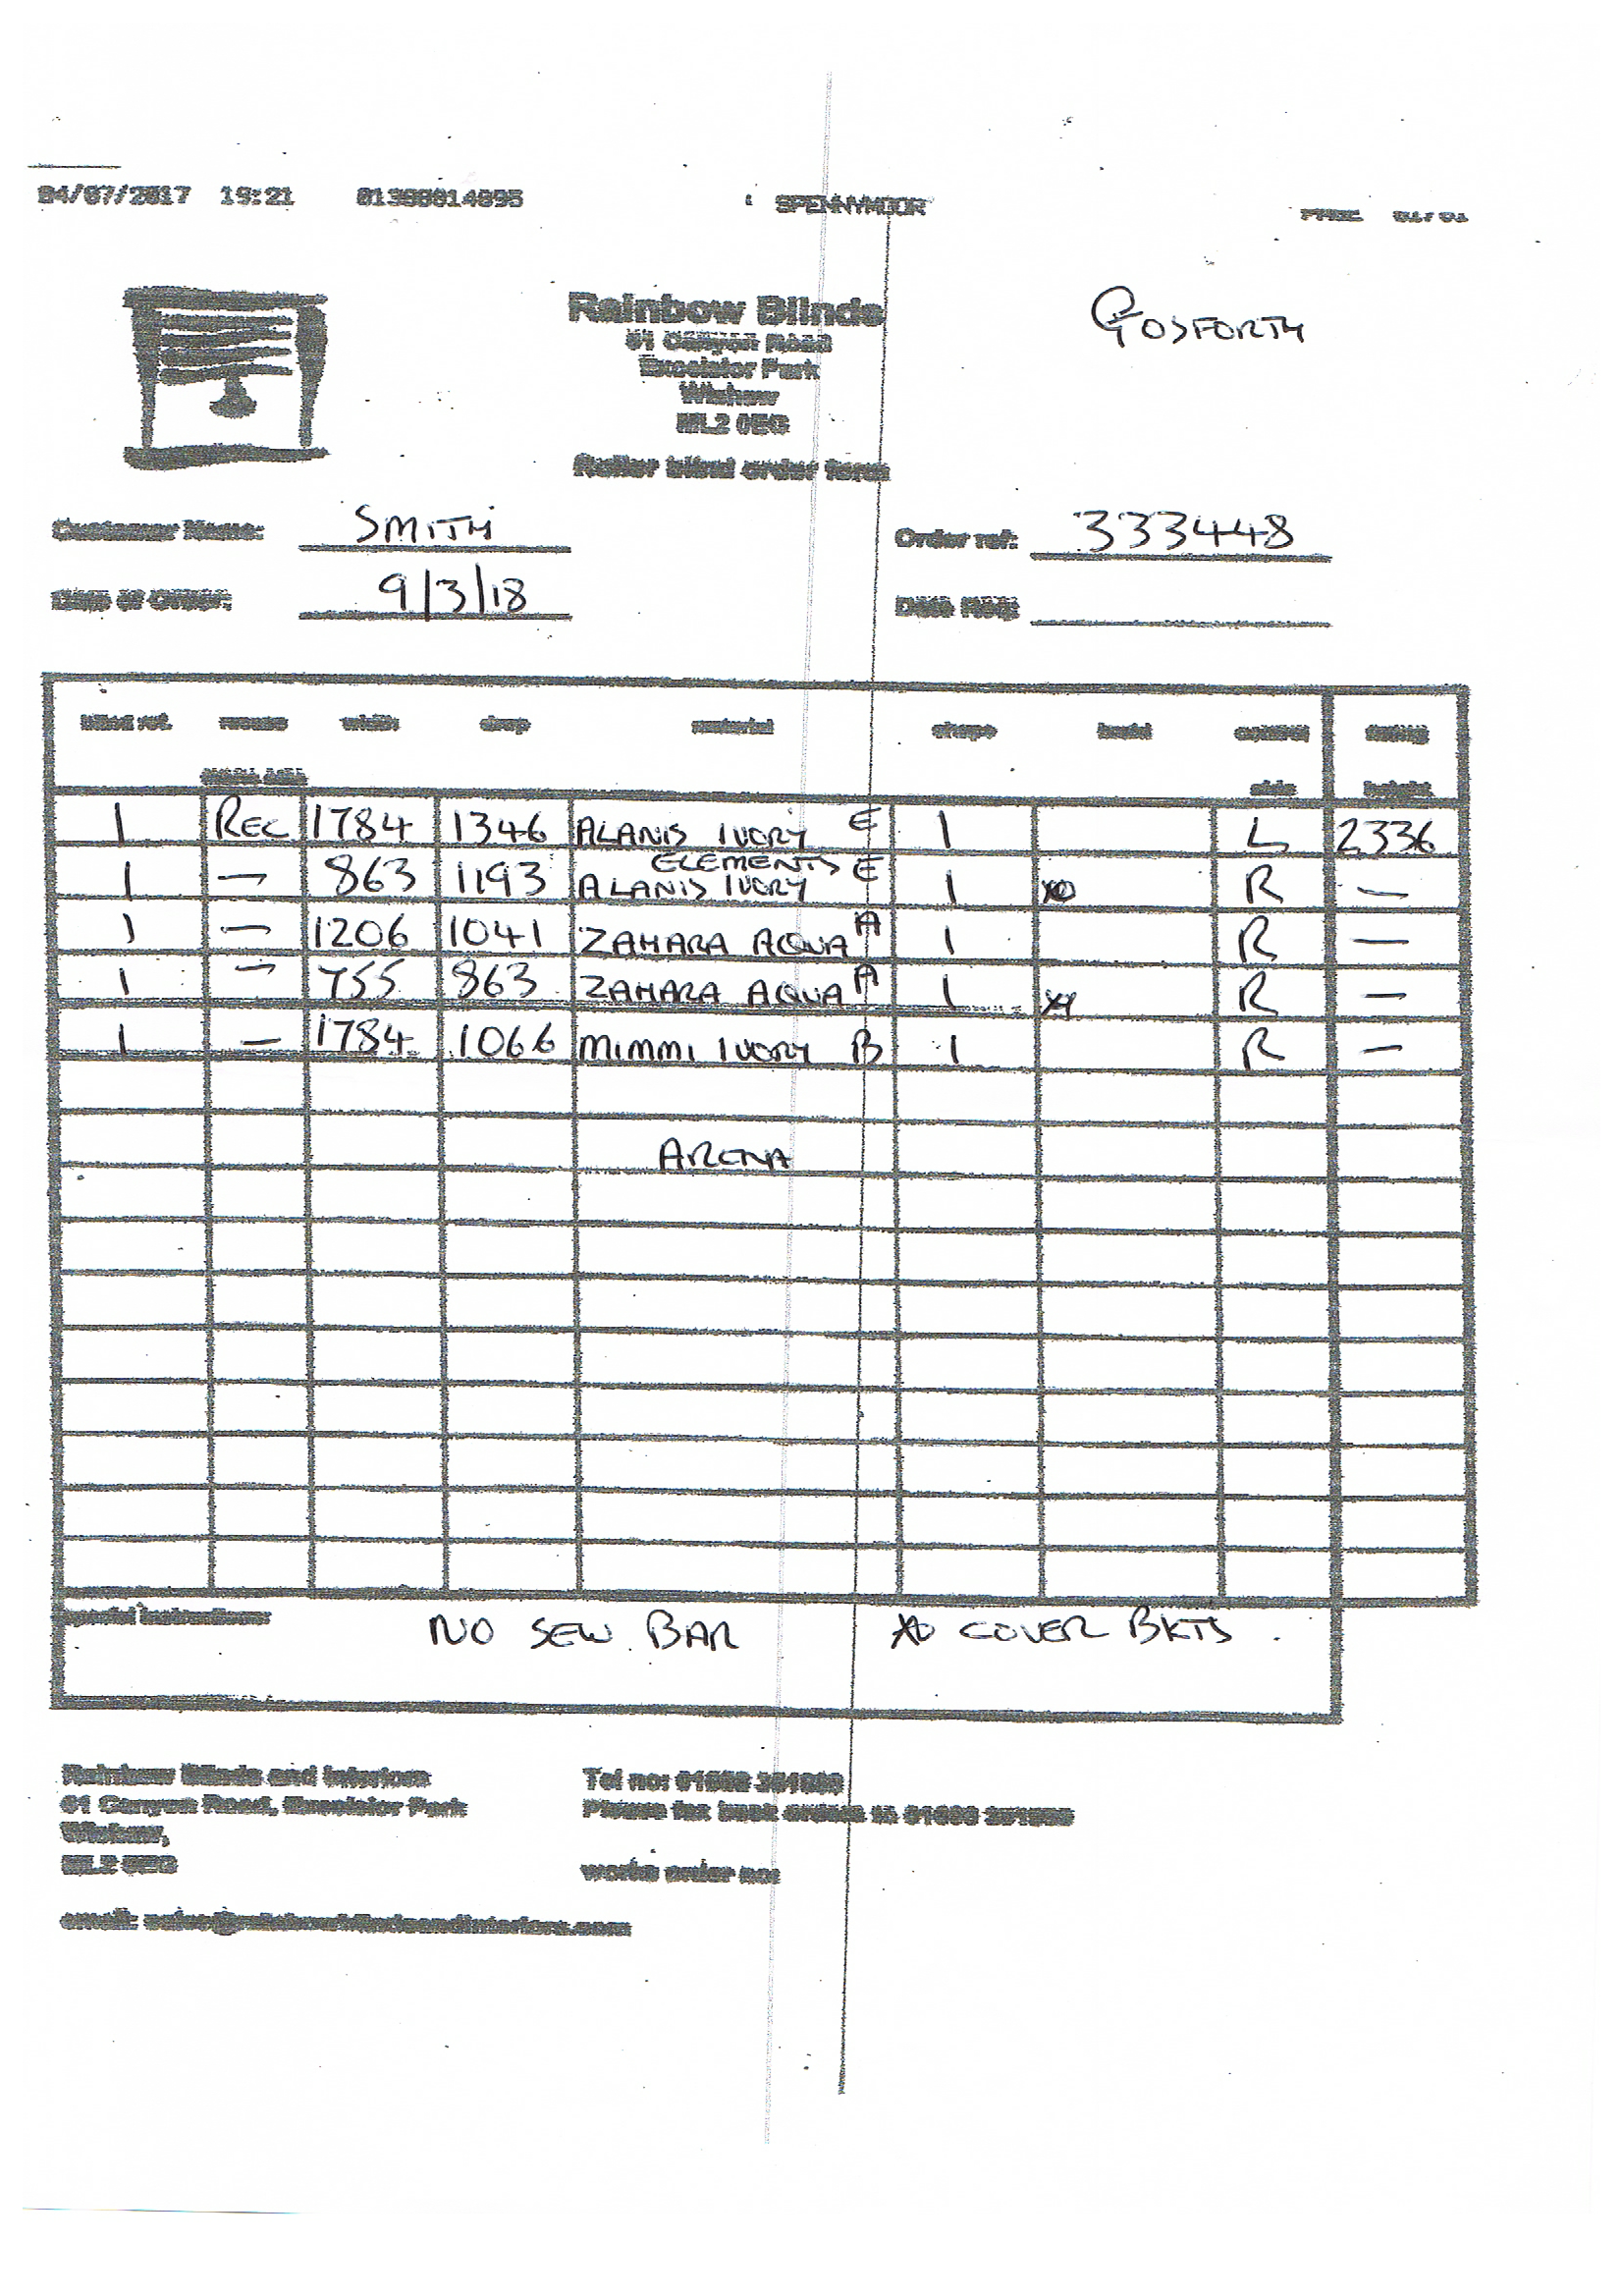 04/07/2017 19:21 01388814895 : SPENNYMOOR PAGE 01/01
Rainbow Blinds
GOSFORTH
61 Canyon Road
Excelsior Park
Wishaw
ML2 0EG
Roller blind order form
Customer Name: SMITH
Order ref: 333448
Date of Order: 9/3/18
Date Req:
blind ref. recess width drop material shape braid control side fitting height
1 REC 1784 1346 ALANIS IVORY E 1 L 2336
ELEMENTS
1 — 863 1193 ALANIS IVORY E 1 R —
1 — 1206 1041 ZAHARA AQUA A 1 R —
1 — 755 863 ZAHARA AQUA A 1 R —
1 — 1784 1066 MIMMI IVORY B 1 R —
ARENA
Special instructions:
NO SEW BAR COVER BKTS.
Rainbow Blinds and Interiors Tel no:
61 Canyon Road, Excelsior Park Please fax back orders to
Wishaw,
ML2 0EG works order no:
email: sales@rainbowblindsandinteriors.com